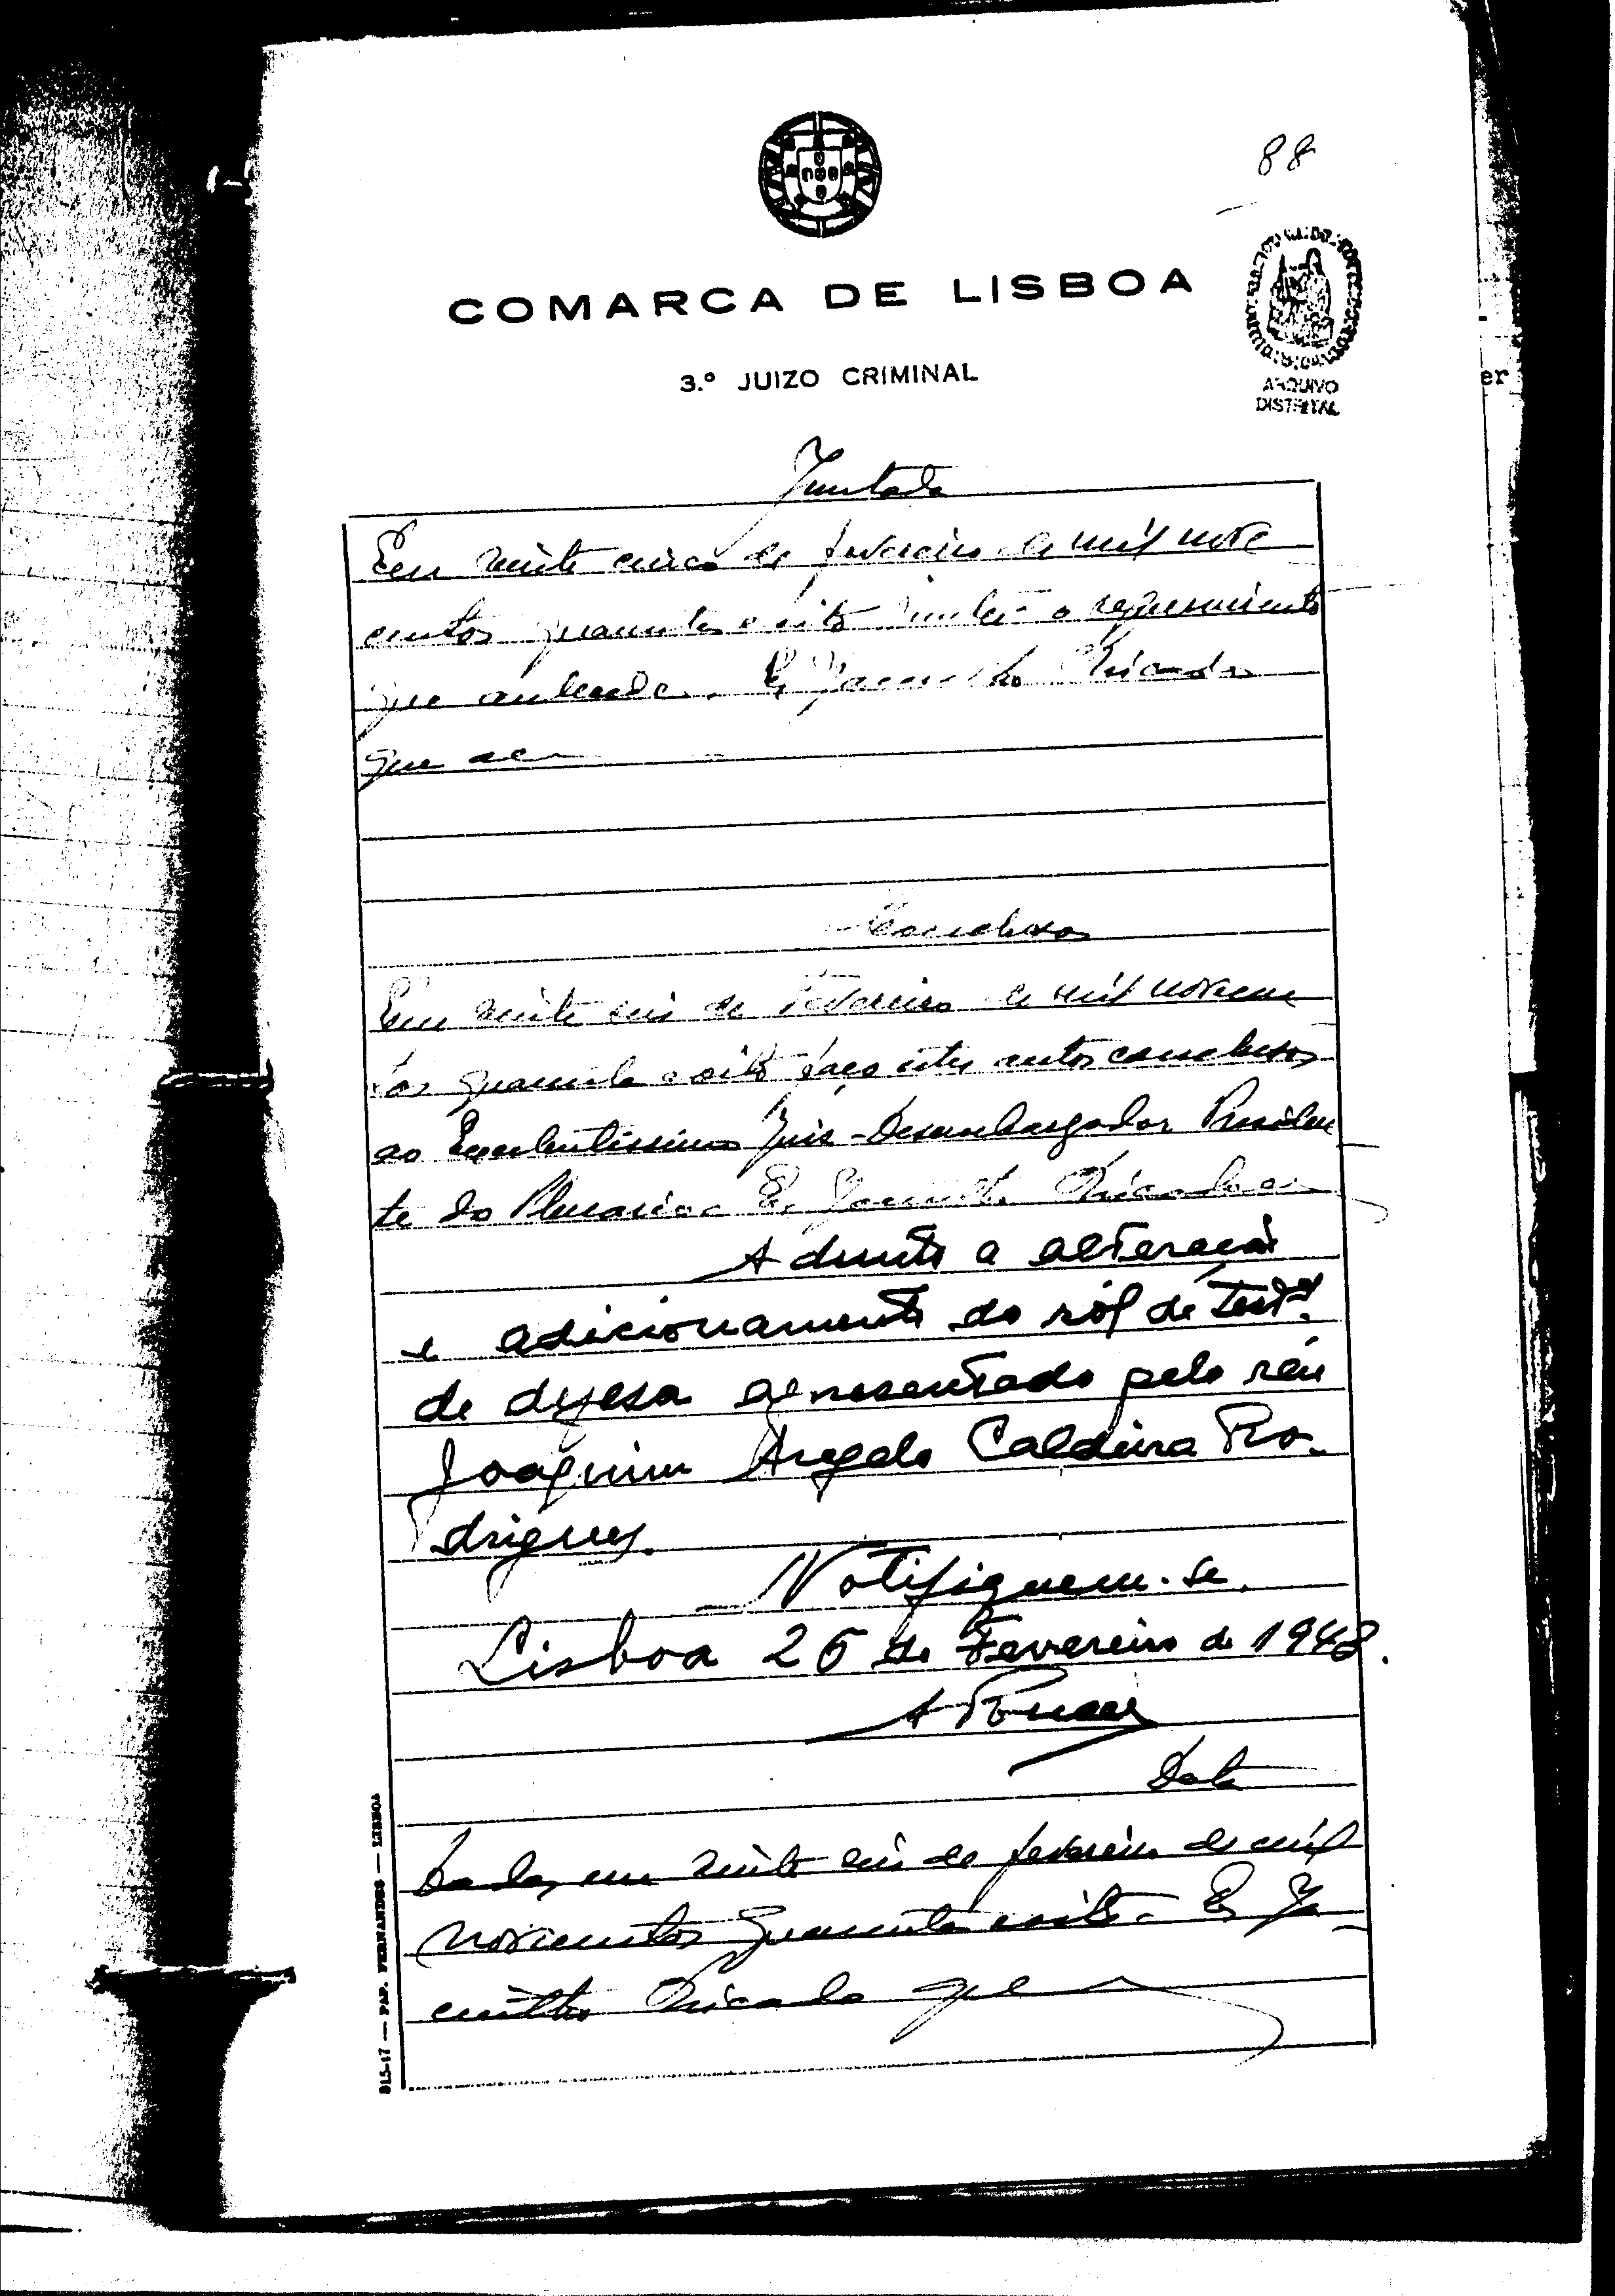 88
COMARCA DE LISBOA
3.º JUIZO CRIMINAL
ARQUIVO
DISTRITAL
er
Juntada
Em vinte cinco de fevereiro de mil nove
centos quarenta e oito juntei o requerimento
que antecede. E,
que
Conclusos
Em vinte seis de Fevereiro de mil novecen
tos quarenta e oito faço estes autos conclusos
ao Excelentissimo Juiz-Desembargador Presiden
te do Plenario. E,
Admito a alteração
e adicionamento do ról de testas.
de defesa apresentado pelo réu
Joaquim Angelo Caldeira Ro-
drigues.
Notifiquem-se.
Lisboa 26 de Fevereiro de 1948.
Data
Dada em vinte seis de fevereiro de mil
novecentos quarenta e oito. E,
que
915-47 — PAP. FERNANDES — LISBOA